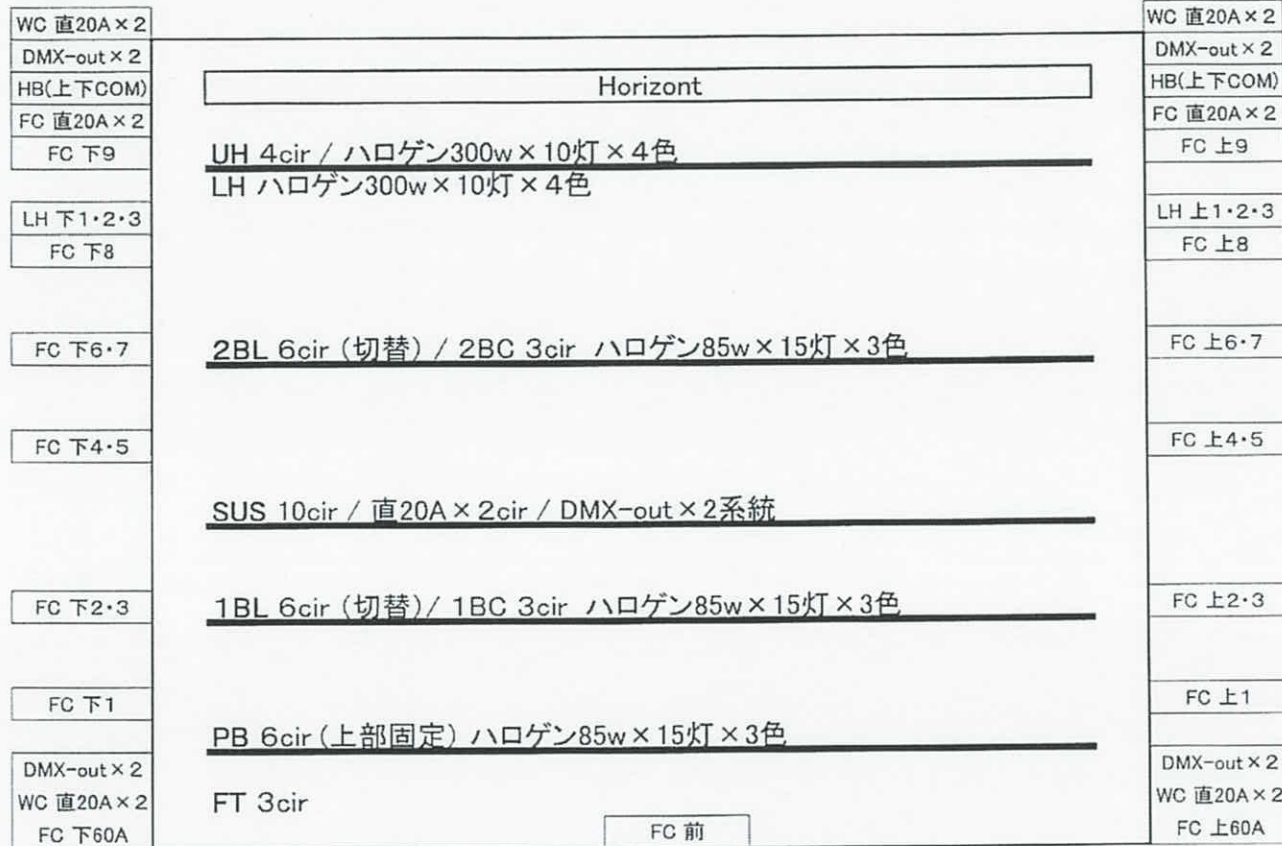 WC 直20A×2
DMX-out×2
HB(上下COM)
FC 直20A×2
FC 下9
LH 下1・2・3
FC 下8
FC 下6・7
FC 下4・5
FC 下2・3
FC 下1
DMX-out×2
WC 直20A×2
FC 下60A
Horizont
UH 4cir / ハロゲン300w×10灯×4色
LH ハロゲン300w×10灯×4色
2BL 6cir (切替) / 2BC 3cir ハロゲン85w×15灯×3色
SUS 10cir / 直20A×2cir / DMX-out×2系統
1BL 6cir (切替)/ 1BC 3cir ハロゲン85w×15灯×3色
PB 6cir (上部固定) ハロゲン85w×15灯×3色
FT 3cir
FC 前
WC 直20A×2
DMX-out×2
HB(上下COM)
FC 直20A×2
FC 上9
LH 上1・2・3
FC 上8
FC 上6・7
FC 上4・5
FC 上2・3
FC 上1
DMX-out×2
WC 直20A×2
FC 上60A